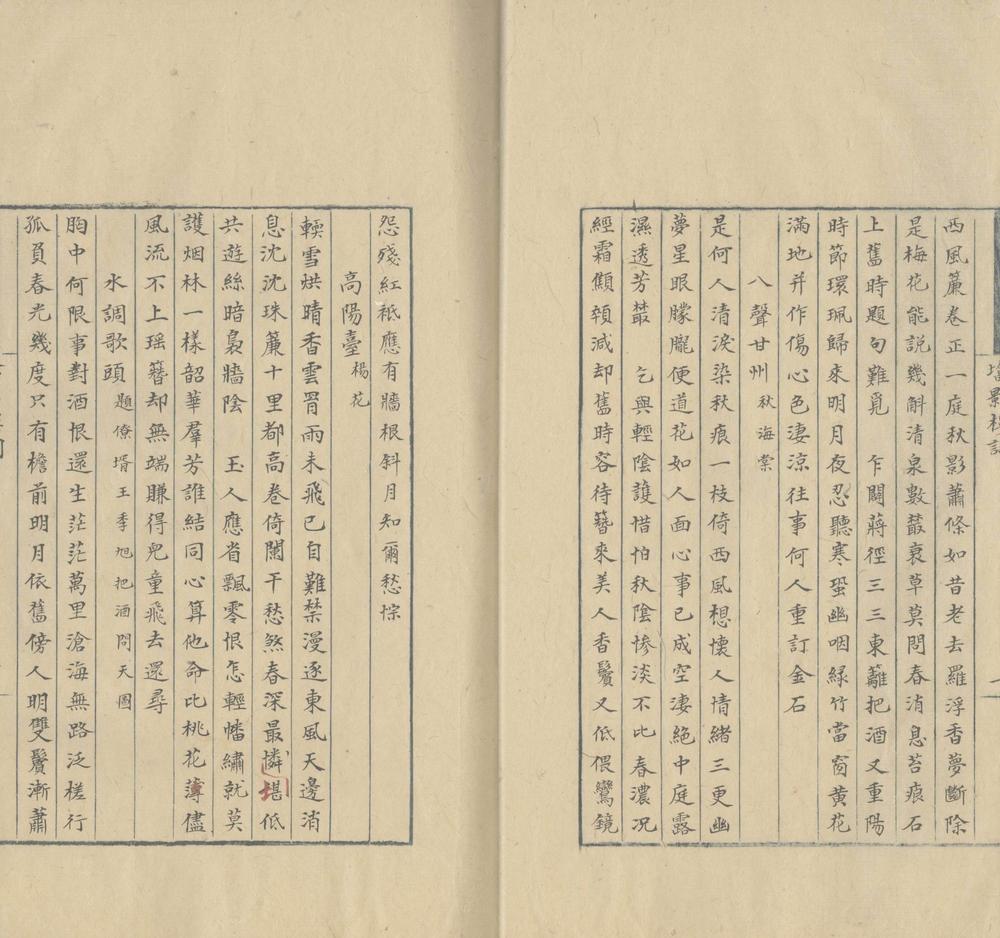 西風簾卷正一庭秋影蕭條如昔老去羅浮香夢斷除
是梅花能説幾斛清泉數叢衰草莫問春消息苔痕石
上舊時題句難覓　乍闢蔣徑三三東籬把酒又重陽
時節環珮歸來明月夜忍聽寒蛩幽咽緑竹當窗黄花
滿地并作傷心色淒涼往事何人重訂金石
八聲甘州 秋海棠
是何人清淚染秋痕一枝倚西風想懷人情緒三更幽
夢星眼朦朧便道花如人面心事已成空淒絶中庭露
濕透芳叢　乞與輕陰護惜怕秋陰慘淡不比春濃况
經霜顦顇減却舊時容待簪來美人香鬢又低偎鸞鏡
怨殘紅祗應有牆根斜月知爾愁悰
高陽臺 楊花
輭雪烘晴香雲罥雨未飛已自難禁漫逐東風天邊消
息沈沈珠簾十里都高卷倚闌干愁煞春深最憐堪低
共遊絲暗裊牆陰　玉人應省飄零恨怎輕幡繡就莫
護烟林一樣韶華羣芳誰結同心算他命比桃花薄儘
風流不上瑶簪却無端賺得兒童飛去還尋
水調歌頭 題僚壻王季旭把酒問天圖
胸中何限事對酒恨還生茫茫萬里滄海無路泛槎行
孤負春光幾度只有檐前明月依舊傍人明雙鬢漸蕭